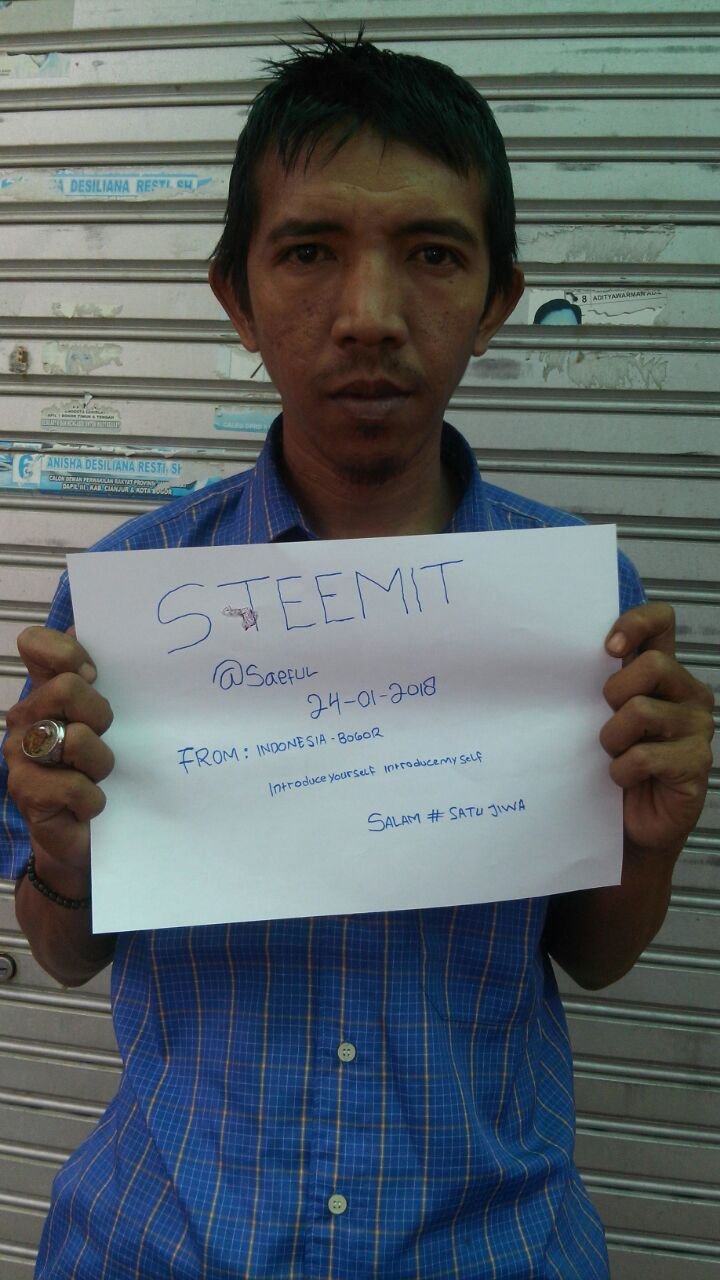 A DESILIANA RESTI, SH
8 ADITYAWARMAN ADIL
ANGGOTA
CALEG DPRD
ANISHA DESILIANA RESTI, SH
CALON DEWAN PERWAKILAN RAKYAT PROVINSI
DAPIL III : KAB. CIANJUR & KOTA BOGOR
STEEMIT
@Saeful
24-01-2018
FROM : INDONESIA - BOGOR
Introduce yourself introduce my self
SALAM # SATU JIWA